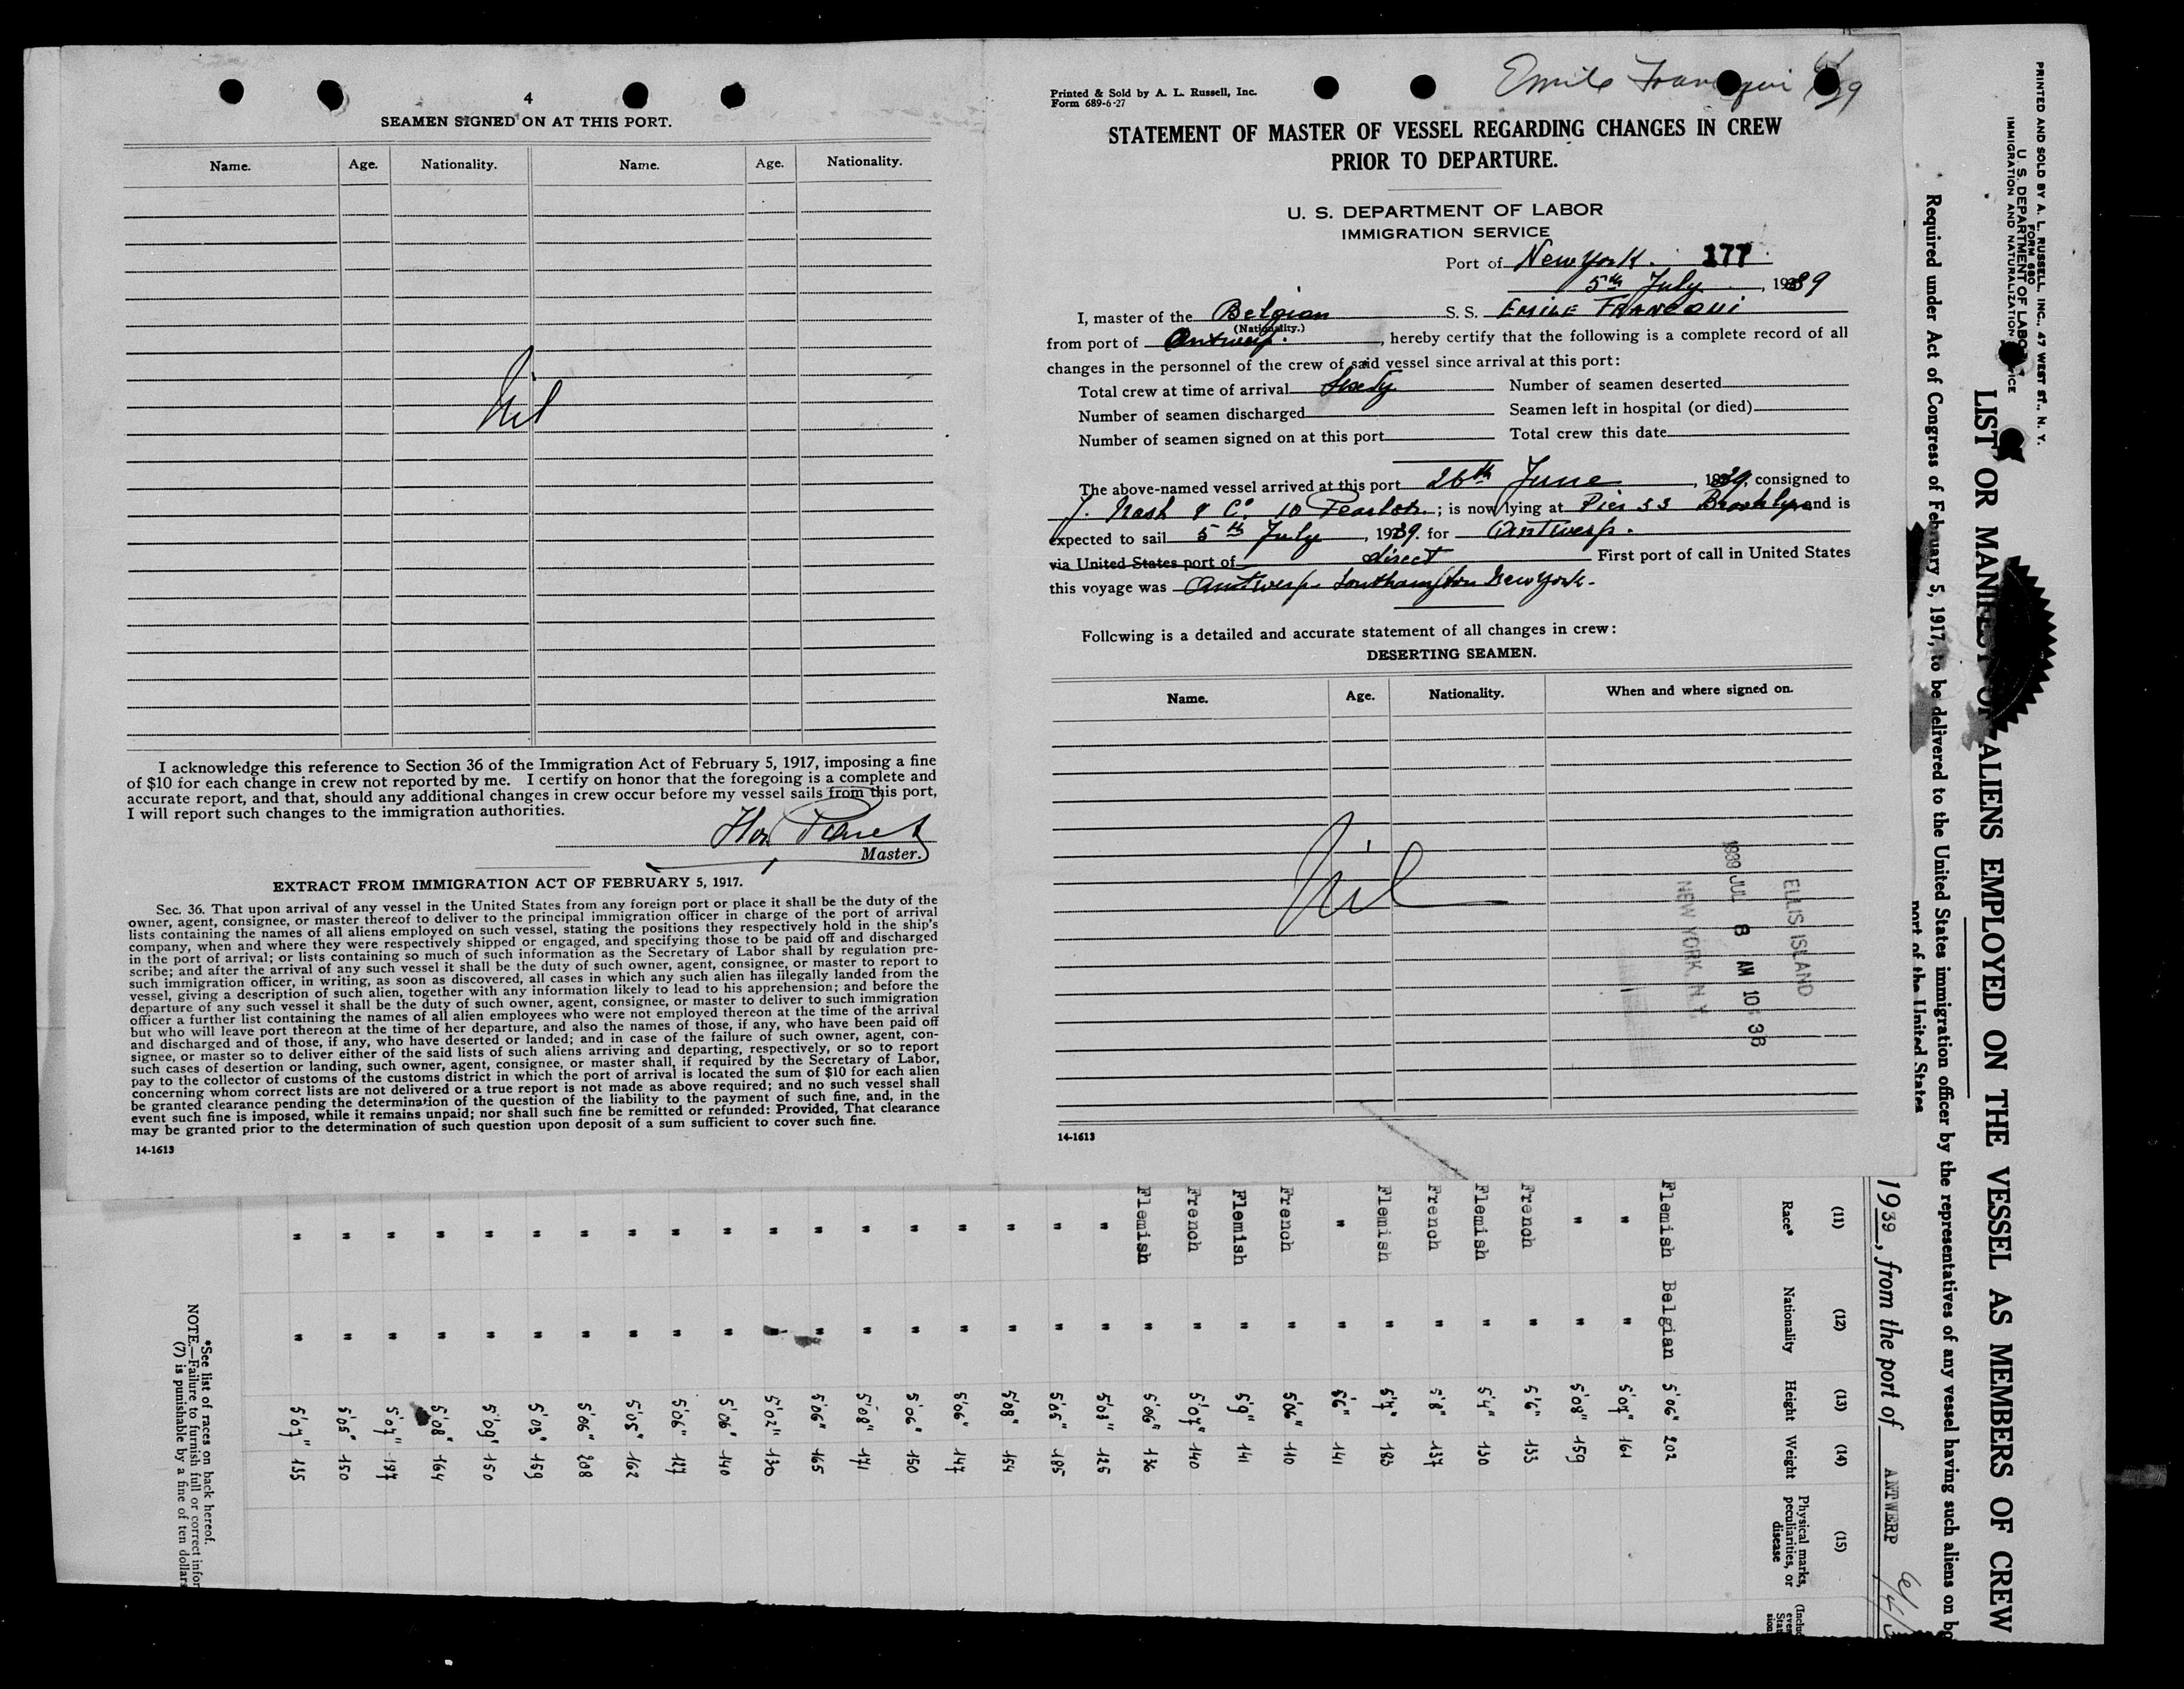 4
SEAMEN SIGNED ON AT THIS PORT.
Name. Age. Nationality. Name. Age. Nationality.
Nil
I acknowledge this reference to Section 36 of the Immigration Act of February 5, 1917, imposing a fine
of $10 for each change in crew not reported by me. I certify on honor that the foregoing is a complete and
accurate report, and that, should any additional changes in crew occur before my vessel sails from this port,
I will report such changes to the immigration authorities.
Master.
EXTRACT FROM IMMIGRATION ACT OF FEBRUARY 5, 1917.
Sec. 36. That upon arrival of any vessel in the United States from any foreign port or place it shall be the duty of the
owner, agent, consignee, or master thereof to deliver to the principal immigration officer in charge of the port of arrival
lists containing the names of all aliens employed on such vessel, stating the positions they respectively hold in the ship's
company, when and where they were respectively shipped or engaged, and specifying those to be paid off and discharged
in the port of arrival; or lists containing so much of such information as the Secretary of Labor shall by regulation pre-
scribe; and after the arrival of any such vessel it shall be the duty of such owner, agent, consignee, or master to report to
such immigration officer, in writing, as soon as discovered, all cases in which any such alien has illegally landed from the
vessel, giving a description of such alien, together with any information likely to lead to his apprehension; and before the
departure of any such vessel it shall be the duty of such owner, agent, consignee, or master to deliver to such immigration
officer a further list containing the names of all alien employees who were not employed thereon at the time of the arrival
but who will leave port thereon at the time of her departure, and also the names of those, if any, who have been paid off
and discharged and of those, if any, who have deserted or landed; and in case of the failure of such owner, agent, con-
signee, or master so to deliver either of the said lists of such aliens arriving and departing, respectively, or so to report
such cases of desertion or landing, such owner, agent, consignee, or master shall, if required by the Secretary of Labor,
pay to the collector of customs of the customs district in which the port of arrival is located the sum of $10 for each alien
concerning whom correct lists are not delivered or a true report is not made as above required; and no such vessel shall
be granted clearance pending the determination of the question of the liability to the payment of such fine, and, in the
event such fine is imposed, while it remains unpaid; nor shall such fine be remitted or refunded: Provided, That clearance
may be granted prior to the determination of such question upon deposit of a sum sufficient to cover such fine.
14-1613
Emile Francqui
Printed & Sold by A. L. Russell, Inc.
Form 689-6-27
STATEMENT OF MASTER OF VESSEL REGARDING CHANGES IN CREW
PRIOR TO DEPARTURE.
U. S. DEPARTMENT OF LABOR
IMMIGRATION SERVICE
Port of New York. 177
5th July, 1939
I, master of the Belgian S. S. EMILE FRANCQUI
(Nationality.)
from port of Antwerp., hereby certify that the following is a complete record of all
changes in the personnel of the crew of said vessel since arrival at this port:
Total crew at time of arrival Number of seamen deserted
Number of seamen discharged Seamen left in hospital (or died)
Number of seamen signed on at this port Total crew this date
The above-named vessel arrived at this port 26th June, 1939, consigned to
J. Nash & Co. 10 ; is now lying at Pier 33 Brooklyn and is
expected to sail 5th July, 1939. for Antwerp.
via United States port of direct First port of call in United States
this voyage was Antwerp Southampton New York.
Following is a detailed and accurate statement of all changes in crew:
DESERTING SEAMEN.
Name. Age. Nationality. When and where signed on.
Nil
ELLIS ISLAND
1939 JUL 8 AM 10 38
NEW YORK, N.Y.
14-1613
PRINTED AND SOLD BY A. L. RUSSELL, INC., 47 WEST ST., N. Y.
FORM 680
U. S. DEPARTMENT OF LABOR
IMMIGRATION AND NATURALIZATION
LIST OR MANIFEST OF ALIENS EMPLOYED ON THE VESSEL AS MEMBERS OF CREW
Required under Act of Congress of February 5, 1917, to be delivered to the United States immigration officer by the representatives of any vessel having such aliens on bo
port of the United States
1939, from the port of ANTWERP
(11) (12) (13) (14) (15)
Race* Nationality Height Weight Physical marks, peculiarities, or disease
Flemish Belgian 5'06" 202
" " 5'07" 161
" " 5'08" 159
French " 5'6" 133
Flemish " 5'4" 130
French " 5'8" 137
Flemish " 5'7" 183
" " 5'6" 141
French " 5'06" 110
Flemish " 5'9" 141
French " 5'07" 140
Flemish " 5'06" 136
" " 5'03" 125
" " 5'05" 185
" " 5'08" 154
" " 5'06" 147
" " 5'06" 150
" " 5'08" 171
" " 5'06" 165
" " 5'02" 130
" " 5'06" 140
" " 5'06" 127
" " 5'05" 162
" " 5'06" 208
" " 5'03" 159
" " 5'09" 150
" " 5'08" 164
" " 5'07" 197
" " 5'05" 150
" " 5'07" 135
*See list of races on back hereof.
NOTE.—Failure to furnish full or correct infor
(7) is punishable by a fine of ten dollars